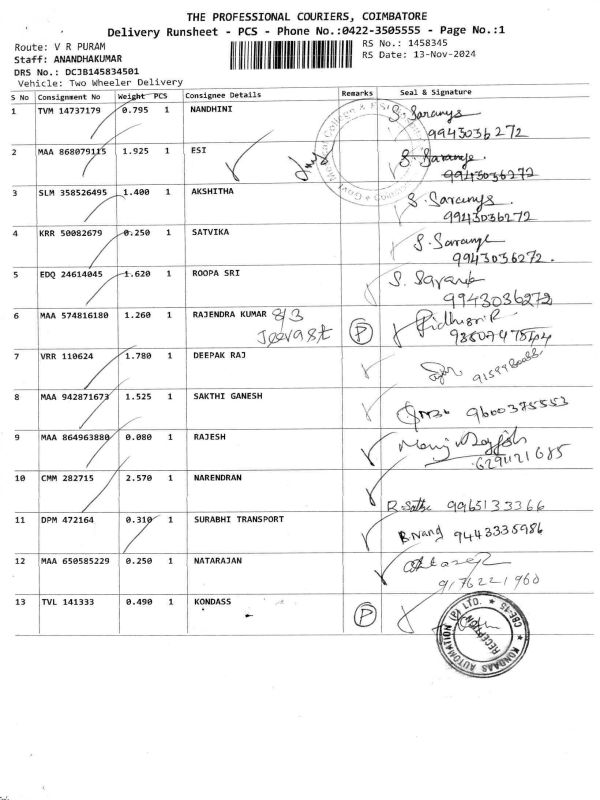 THE PROFESSIONAL COURIERS, COIMBATORE
Delivery Runsheet - PCS - Phone No.:0422-3505555 - Page No.:1
Route: V R PURAM
RS No.: 1458345
Staff: ANANDHAKUMAR
RS Date: 13-Nov-2024
DRS No.: DCJB145834501
Vehicle: Two Wheeler Delivery
S No Consignment No Weight PCS Consignee Details Remarks Seal & Signature
1 TVM 14737179 0.795 1 NANDHINI S. Saranya
9943036272
2 MAA 868079115 1.925 1 ESI S. Saranya
9943036272
3 SLM 358526495 1.400 1 AKSHITHA S. Saranya
9943036272
4 KRR 50082679 0.250 1 SATVIKA S. Saranya
9943036272.
5 EDQ 24614045 1.620 1 ROOPA SRI S. Saranya
9943036272
6 MAA 574816180 1.260 1 RAJENDRA KUMAR 8/3 P
7 VRR 110624 1.780 1 DEEPAK RAJ
8 MAA 942871673 1.525 1 SAKTHI GANESH 9600375553
9 MAA 864963880 0.080 1 RAJESH
6291121685
10 CMM 282715 2.570 1 NARENDRAN
9965133366
11 DPM 472164 0.310 1 SURABHI TRANSPORT 9443335986
12 MAA 650585229 0.250 1 NATARAJAN
9176221960
13 TVL 141333 0.490 1 KONDASS P
KONDAAS AUTOMATION (P) LTD. * CBE-15 *
RECEPTION